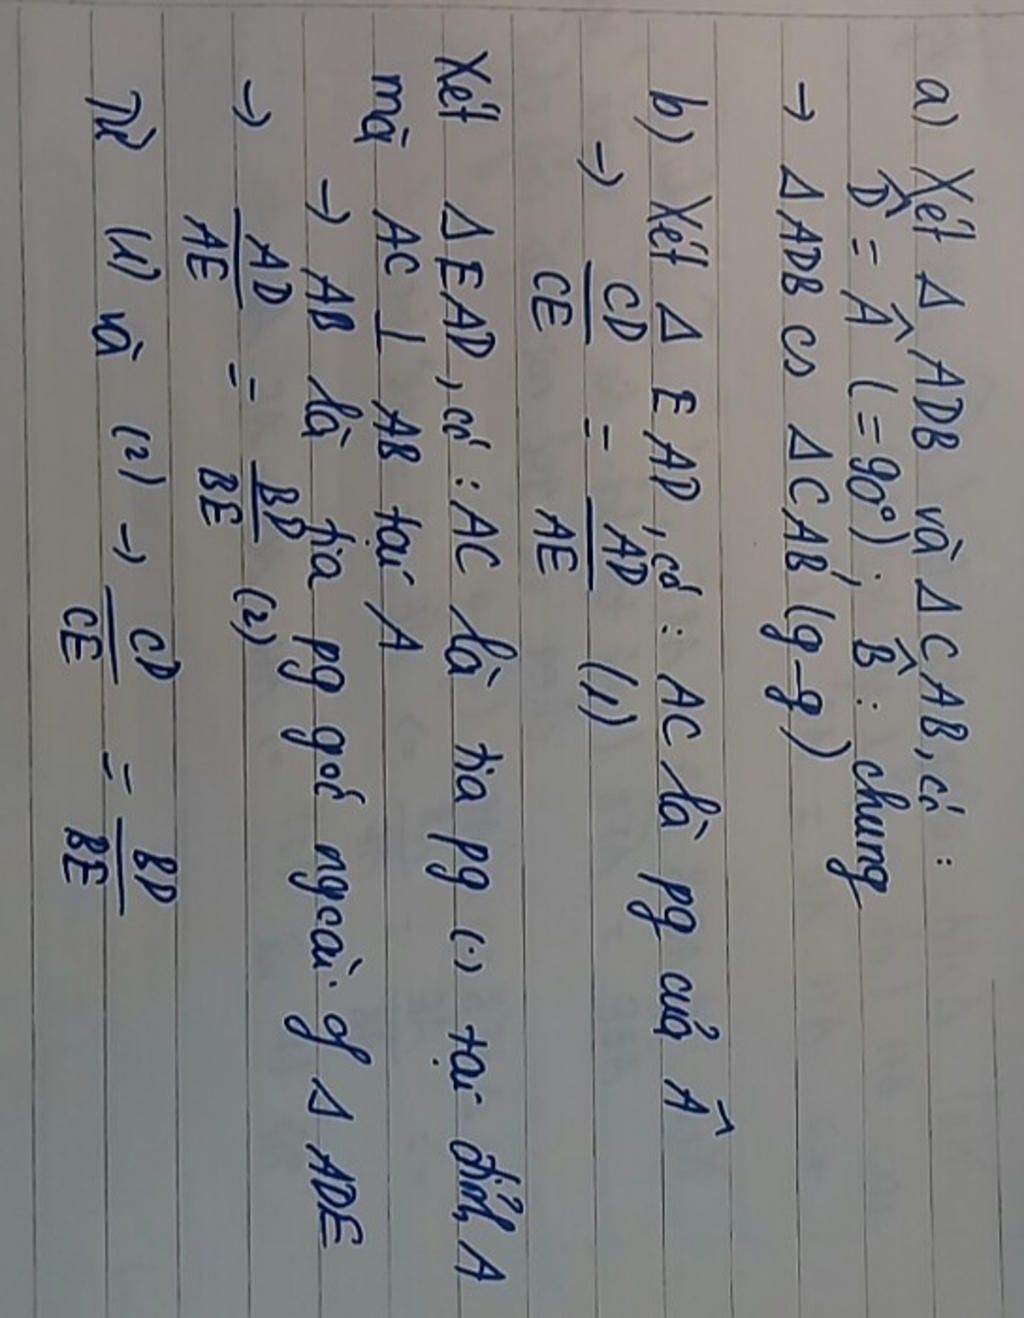 a) Xét Δ ADB và Δ CAB, có :
D̂ = Â (= 90°) ; B̂ : chung
→ Δ ADB ∽ Δ CAB (g-g)
b) Xét Δ EAD, có : AC là pg của Â
→ CD/CE = AD/AE (1)
Xét Δ EAD, có : AC là tia pg (.) tại đỉnh A
mà AC ⊥ AB tại A
→ AB là tia pg góc ngoài of Δ ADE
→ AD/AE = BD/BE (2)
Từ (1) và (2) → CD/CE = BD/BE